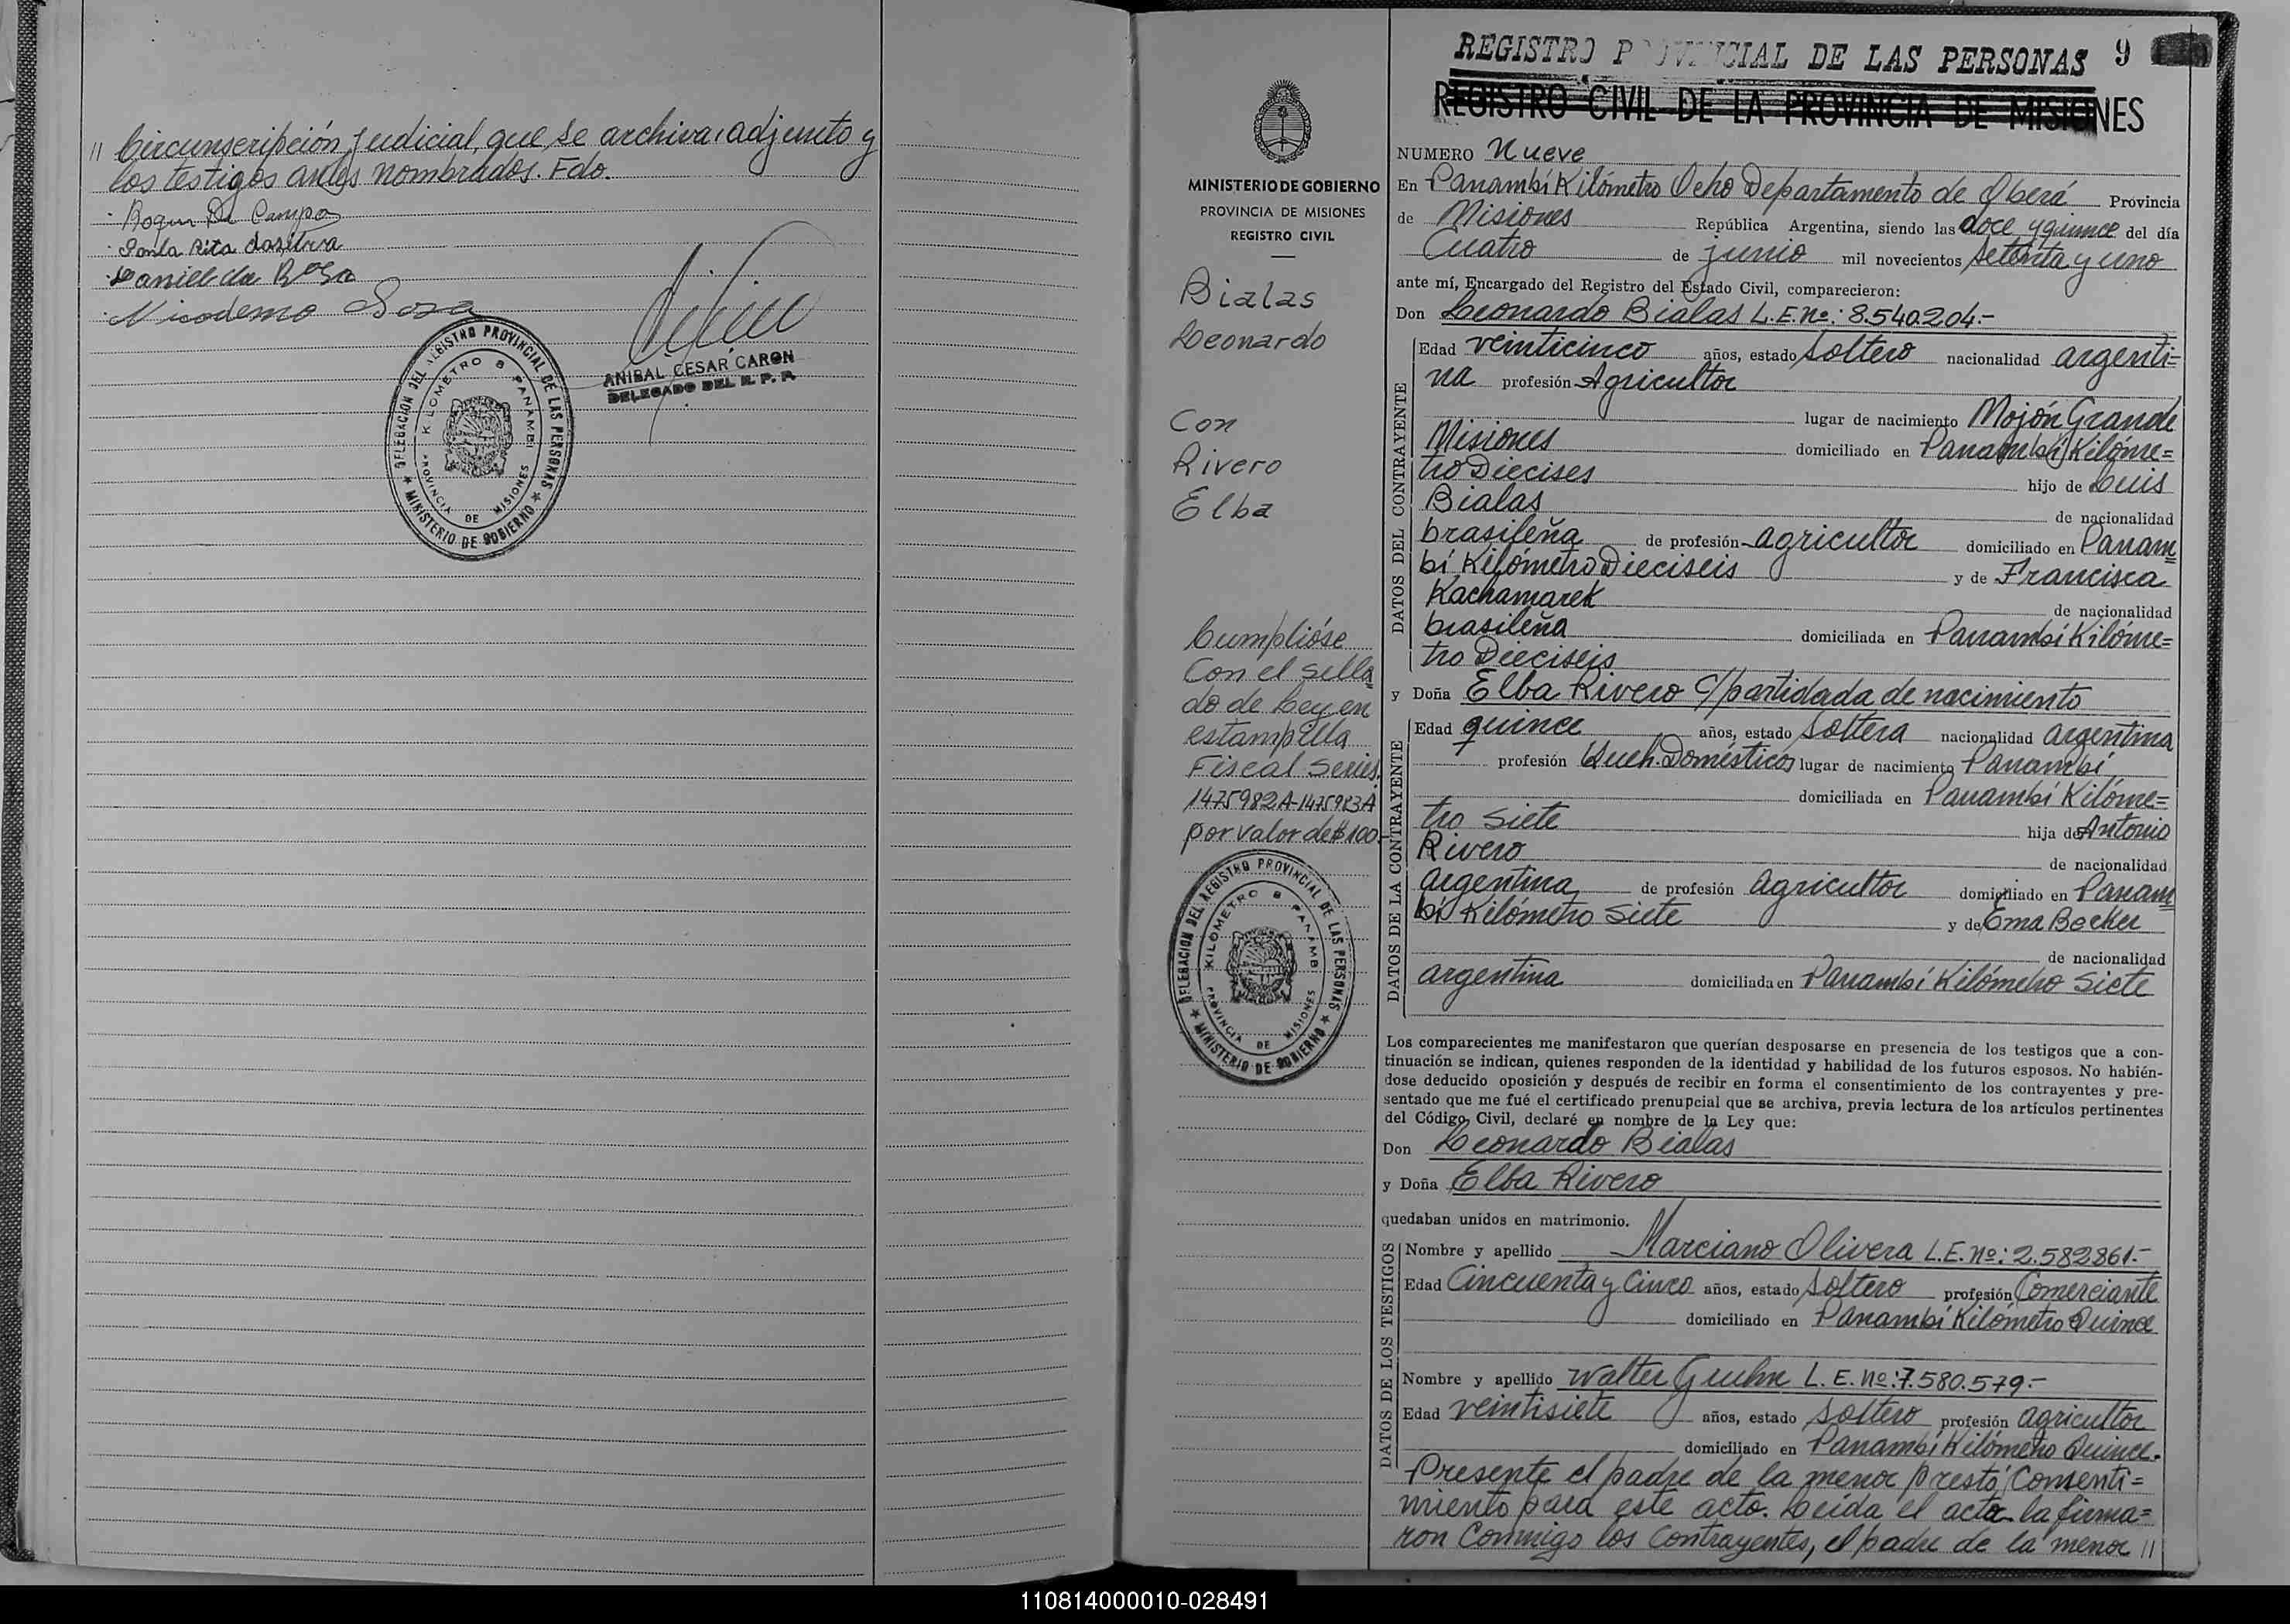 // Circunscripción Judicial, que se archiva adjunto y
los testigos antes nombrados. Fdo.
Roque Da Campo
Rita dasilva
Daniel da Rosa
Nicodemo Sosa
ANIBAL CESAR CARON
DELEGADO DEL R. P. P.
DELEGACION DEL REGISTRO PROVINCIAL DE LAS PERSONAS
* MINISTERIO DE GOBIERNO *
KILOMETRO 8 PANAMBI
PROVINCIA DE MISIONES
MINISTERIO DE GOBIERNO
PROVINCIA DE MISIONES
REGISTRO CIVIL
Bialas
Leonardo
Con
Rivero
Elba
Cumplióse
Con el Sella
do de Ley en
estampilla
Fiscal Series
1475982A-1475983A
por valor de $100.-
DELEGACION DEL REGISTRO PROVINCIAL DE LAS PERSONAS
* MINISTERIO DE GOBIERNO *
KILOMETRO 8 PANAMBI
PROVINCIA DE MISIONES
REGISTRO PROVINCIAL DE LAS PERSONAS 9
REGISTRO CIVIL DE LA PROVINCIA DE MISIONES
NUMERO Nueve
En Panambí Kilómetro Ocho Departamento de Oberá Provincia
de Misiones República Argentina, siendo las doce y quince del día
Cuatro de junio mil novecientos Setenta y uno
ante mí, Encargado del Registro del Estado Civil, comparecieron:
Don Leonardo Bialas L.E.Nº: 8.540.204.-
DATOS DEL CONTRAYENTE
Edad veinticinco años, estado Soltero nacionalidad argenti=
na profesión Agricultor
lugar de nacimiento Mojón Grande
Misiones domiciliado en Panambí Kilóme=
tro Diecises hijo de Luis
Bialas de nacionalidad
brasileña de profesión agricultor domiciliado en Panam
bí Kilómetro Dieciseis y de Francisca
Kachamarek de nacionalidad
brasileña domiciliada en Panambí Kilóme=
tro Dieciseis
y Doña Elba Rivero C/partidada de nacimiento
DATOS DE LA CONTRAYENTE
Edad quince años, estado Soltera nacionalidad argentina
profesión Queh. Domésticos lugar de nacimiento Panambí
domiciliada en Panambí Kilóme=
tro Siete hija de Antonio
Rivero de nacionalidad
argentina de profesión agricultor domiciliado en Panam
bí Kilómetro Siete y de Ema Becker
de nacionalidad
argentina domiciliada en Panambí Kilómetro Siete
Los comparecientes me manifestaron que querían desposarse en presencia de los testigos que a con-
tinuación se indican, quienes responden de la identidad y habilidad de los futuros esposos. No habién-
dose deducido oposición y después de recibir en forma el consentimiento de los contrayentes y pre-
sentado que me fué el certificado prenupcial que se archiva, previa lectura de los artículos pertinentes
del Código Civil, declaré en nombre de la Ley que:
Don Leonardo Bialas
y Doña Elba Rivero
quedaban unidos en matrimonio.
DATOS DE LOS TESTIGOS
Nombre y apellido Marciano Olivera L.E.Nº: 2.582861.-
Edad Cincuenta y Cinco años, estado Soltero profesión Comerciante
domiciliado en Panambí Kilómetro Quince
Nombre y apellido Walter Gruhn L.E.Nº: 7.580.579.-
Edad veintisiete años, estado Soltero profesión agricultor
domiciliado en Panambí Kilómetro Quince.
Presente el padre de la menor prestó Consenti=
miento para este acto. Leída el acta la firma=
ron Conmigo los Contrayentes, el padre de la menor //
110814000010-028491